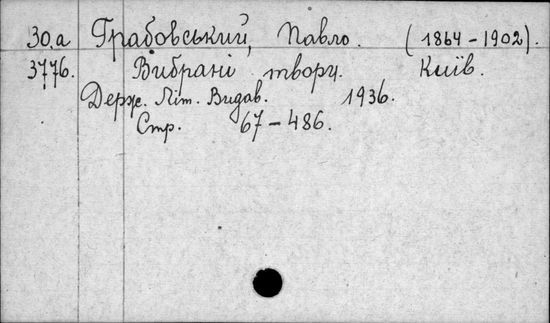 30.a Грабовський, Павло. (1864-1902).
3776. Вибрані твори. Київ.
Держ. Літ. Видав. 1936.
Стр. 67-486.